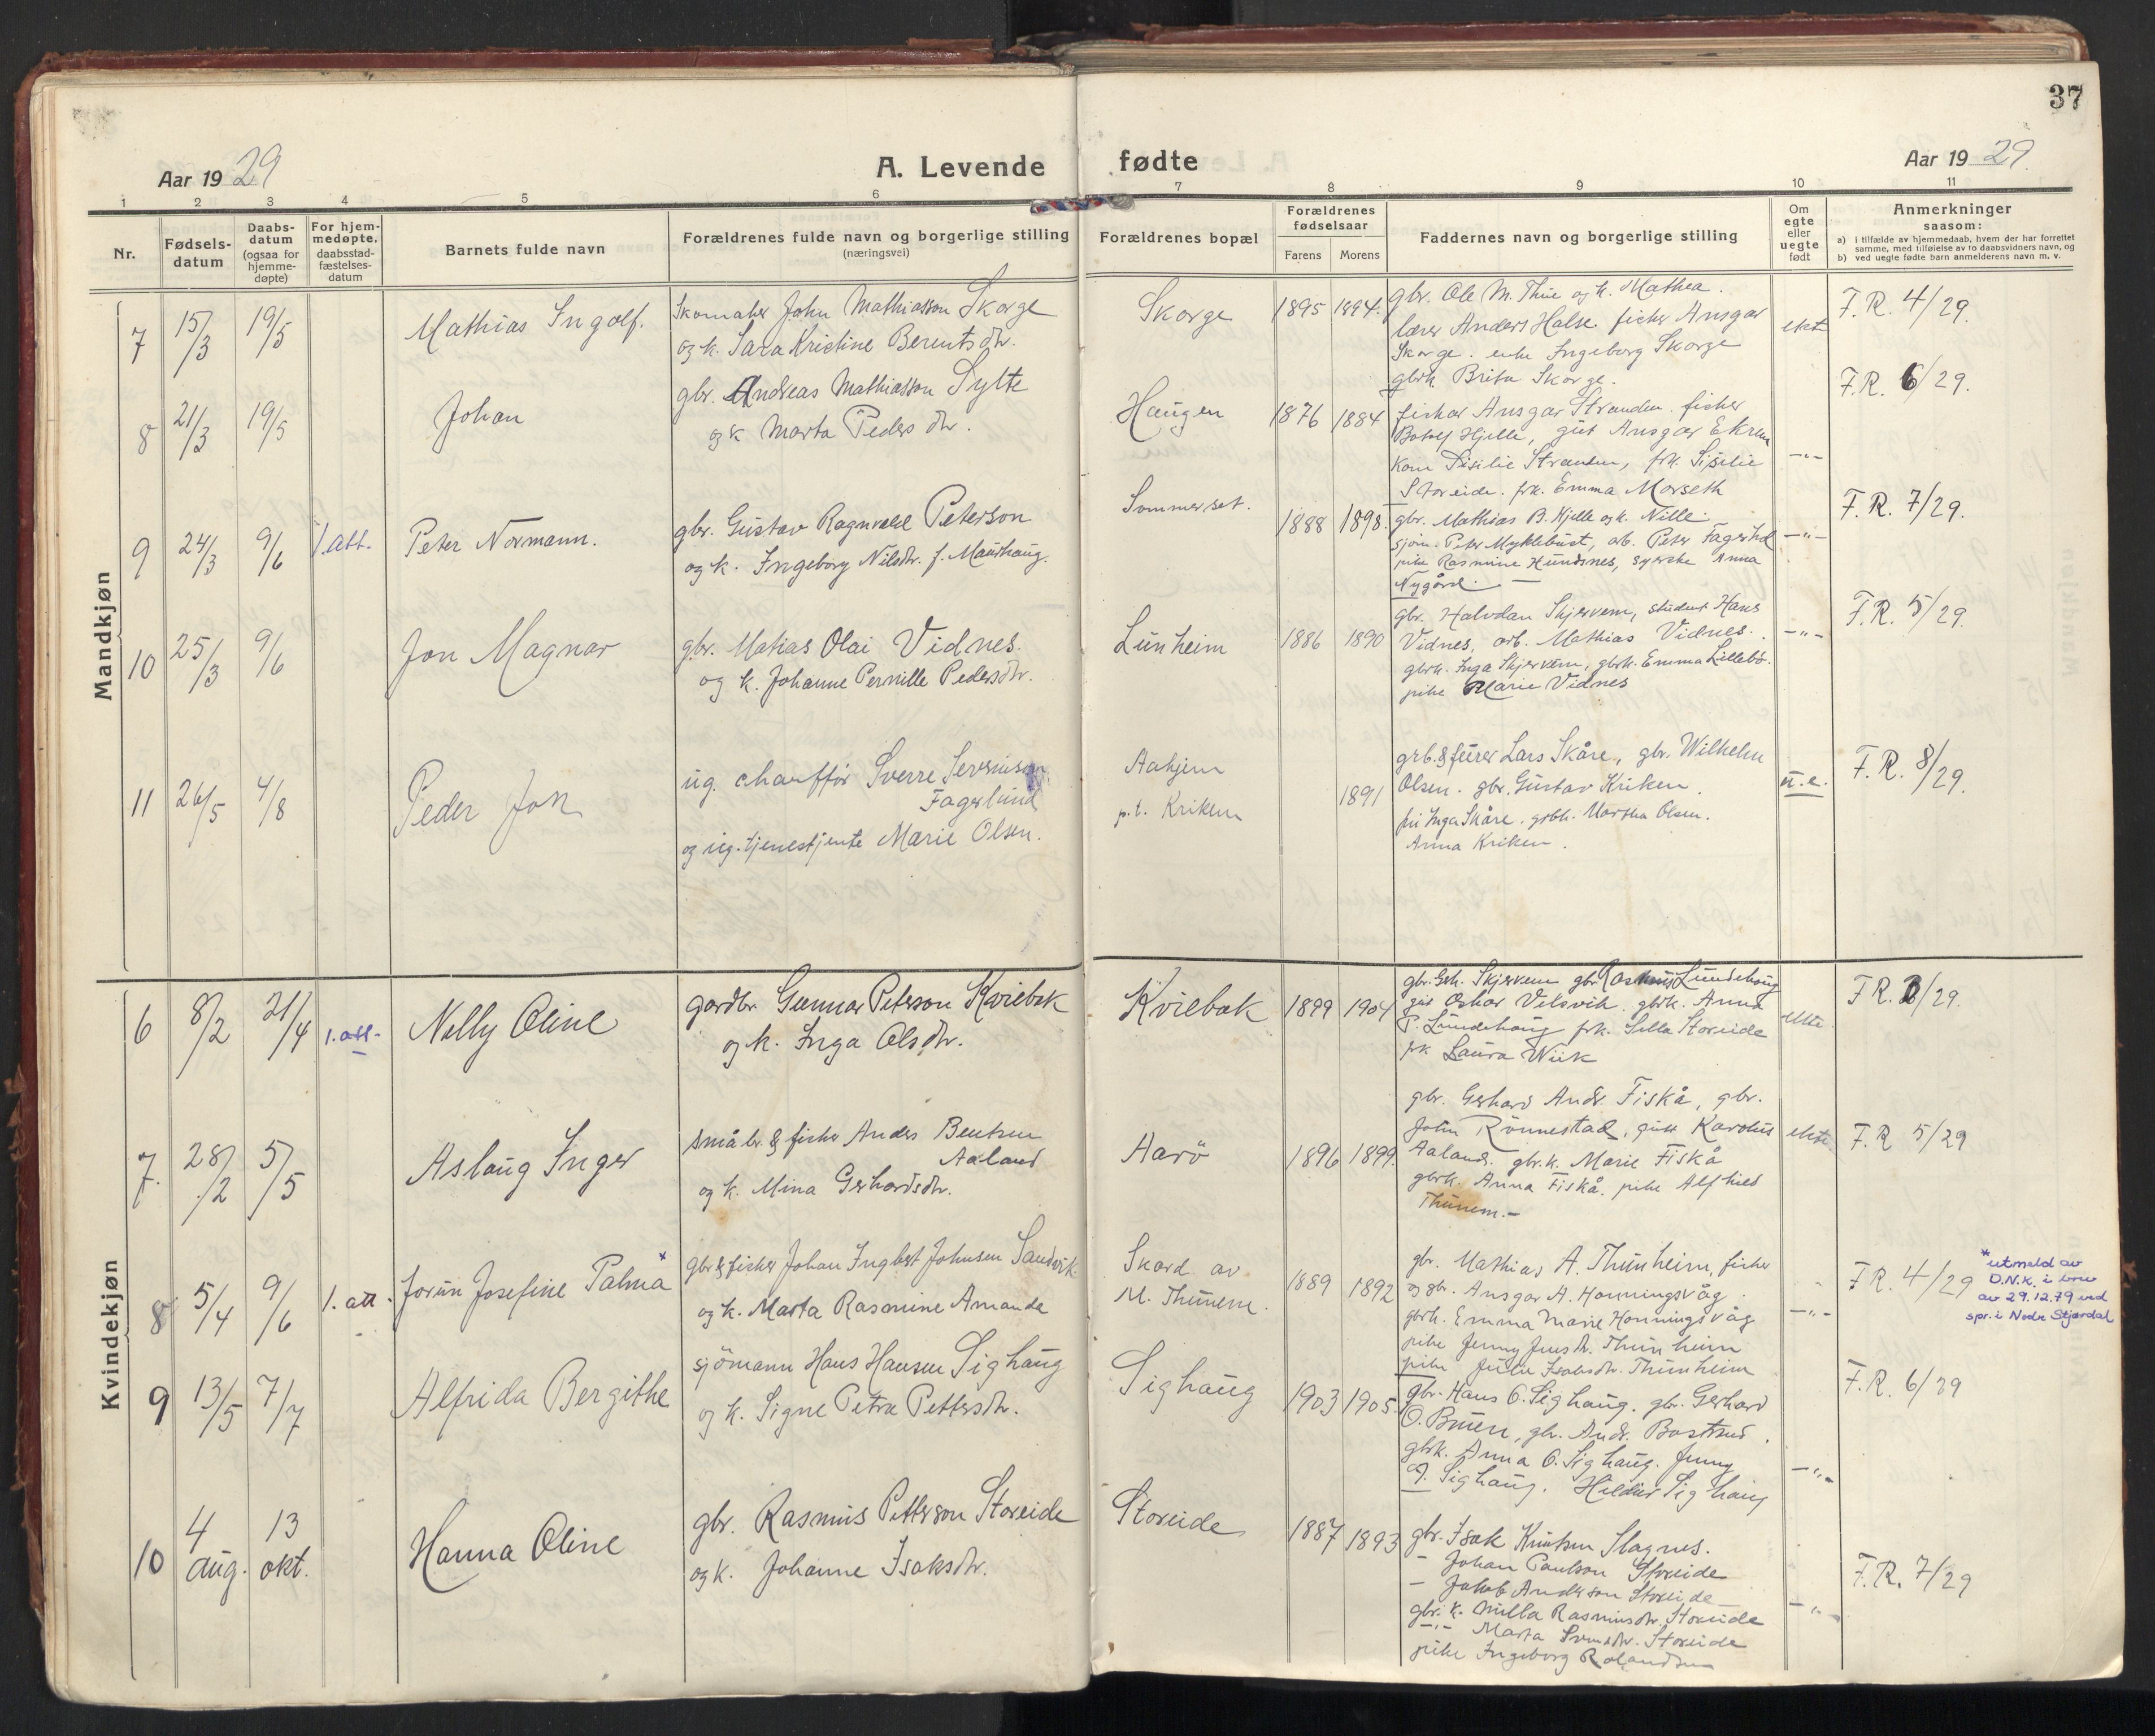 37
Aar 1929
A. Levende fødte
Aar 1929.
1 2 3 4 5 6 7 8 9 10 11
Nr.
Fødsels-
datum
Daabs-
datum
(ogsaa for
hjemme-
døpte)
For hjem-
medøpte.
daabsstad-
fæstelses-
datum
Barnets fulde navn
Forældrenes fulde navn og borgerlige stilling
(næringsvei)
Forældrenes bopæl
Forældrenes
fødselsaar
Farens Morens
Faddernes navn og borgerlige stilling
Om
egte
eller
uegte
født
Anmerkninger
saasom:
a) i tilfælde av hjemmedaab, hvem der har forrettet
samme, med tilføielse av to daabsvidners navn, og
b) ved uegte fødte barn anmelderens navn m. v.
Mandkjøn
7 15/3 19/5 Mathias Ingolf.
Skomaker John Mathiasson Skorge
og k. Sara Kristine Berentsdtr.
Skorge 1895 1894.
gbr. Ole M. Thue og k. Mathea.
lærer Anders Halse. fisker Ansgar
Skorge. enke Ingeborg Skorge
gbrk. Brita Skorge.
ekt
F.R. 4/29.
8 21/3 19/5 Johan
gbr. Andreas Mathiasson Sylte
og k Marta Pedersdtr.
Haugen 1876 1884
fisker Ansgar Stranden. fisker
Botolf Hjelle, gut Ansgar Ekrem
Kone Sisilie Stranden, frk. Siselie
Storeide. frk. Emma Morseth
-"-
F.R. 6/29.
9 24/3 9/6 1.att. Peter Normann.
gbr. Gustav Ragnvald Peterson
og k. Ingeborg Nilsdtr. f. Maurhaug.
Sommerset. 1888 1898.
gbr. Mathias B. Hjelle og k. Nille.
sjøm. Peter Myklebust, arb. Peter Fagerhol
pike Rasmine Hundsnes, syerske Anna
Nygård. —
-"-
F.R. 7/29.
10 25/3 9/6 Jon Magnar
gbr. Matias Olai Vidnes.
og k. Johanne Pernille Pedersdtr.
Lunheim 1886 1890
gbr. Halvdan Skjervem, student Hans
Vidnes, arb. Mathias Vidnes.
gbrk. Inga Skjervem, gbrk. Emma Lillebø.
pike Marie Vidnes
-"-
F.R. 5/29.
11 26/5 4/8 Peder Jon
ug. chauffør Sverre Severinson
Fagerlund
og ug. tjenestjente Marie Olsen.
Aahjem
p.t. Kriken
1891
grb. & feirer Lars Skåre, gbr. Wilhelm
Olsen. gbr. Gustav Kriken.
fru Inga Skåre. grbk. Martha Olsen.
Anna Kriken.
u.e.
F.R. 8/29.
Kvindekjøn
6 8/2 21/4 1.att. Nelly Oline
gardbr. Gunnar Peterson Kviebak
og k. Inga Olsdtr.
Kviebak 1899 1904
gbr. Geh. Skjervem gbr. Rasmus Lundehaug
gut Oskar Velsvik. gbrk. Anna
P. Lundehaug frk. Silla Storeide
frk Laura Wiik
ekte
F.R. 2/29.
7. 28/2 5/5 Aslaug Inger
småbr. & fisker Anders Bentsen
Aaland
og k. Mina Gerhardsdtr.
Harö 1896 1899.
gbr. Gerhard Andr. Fiskå, gbr.
John Rönnestad, gutt Karolus
Aaland. gbr.k. Marie Fiskå
gbrk. Anna Fiskå. pike Alfhild
Thunem.-
ekte
F.R 5/29
8 5/4 9/6 1.att. Jorun Josefine Palma*
gbr & fisker Johan Ingbert Johnsen Sandvik
og k. Marta Rasmine Amanda
Skard av
M. Thunem.
1889 1892
gbr. Mathias A. Thunheim, fisker
og gbr. Ansgar A. Honningsvåg
gbrk. Emma Marie Honningsvåg
pike Jenny Jensdtr. Thunheim
pike Julie Isaksdtr. Thunheim
-"-
F.R. 4/29
*utmeld av
D.N.K. i brev
av 29.12.79 ved
spr. i Nedre Stjørdal
9 13/5 7/7 Alfrida Bergithe
sjömann Hans Hansen Sighaug
og k. Signe Petra Pettersdtr.
Sighaug 1903 1905.
gbr. Hans O. Sighaug. gbr. Gerhard
O. Bruen, gbr. Andr. Bostrud.
gbrk. Anna O. Sighaug. Jenny
J. Sighaug. Hildur Sighaug
-"-
F.R. 6/29
10 4 aug. 13 okt. Hanna Oline
gbr. Rasmus Petterson Storeide
og k. Johanne Isaksdtr.
Storeide 1887 1893
gbr. Isak Knutsen Slagnes.
- Johan Paulson Storeide
- Jakob Anderson Storeide
gbr. k. Milla Rasmusdtr. Storeide
-"- Marta Svendtr. Storeide
pike Ingeborg Rolandsen
-"-
F.R. 7/29